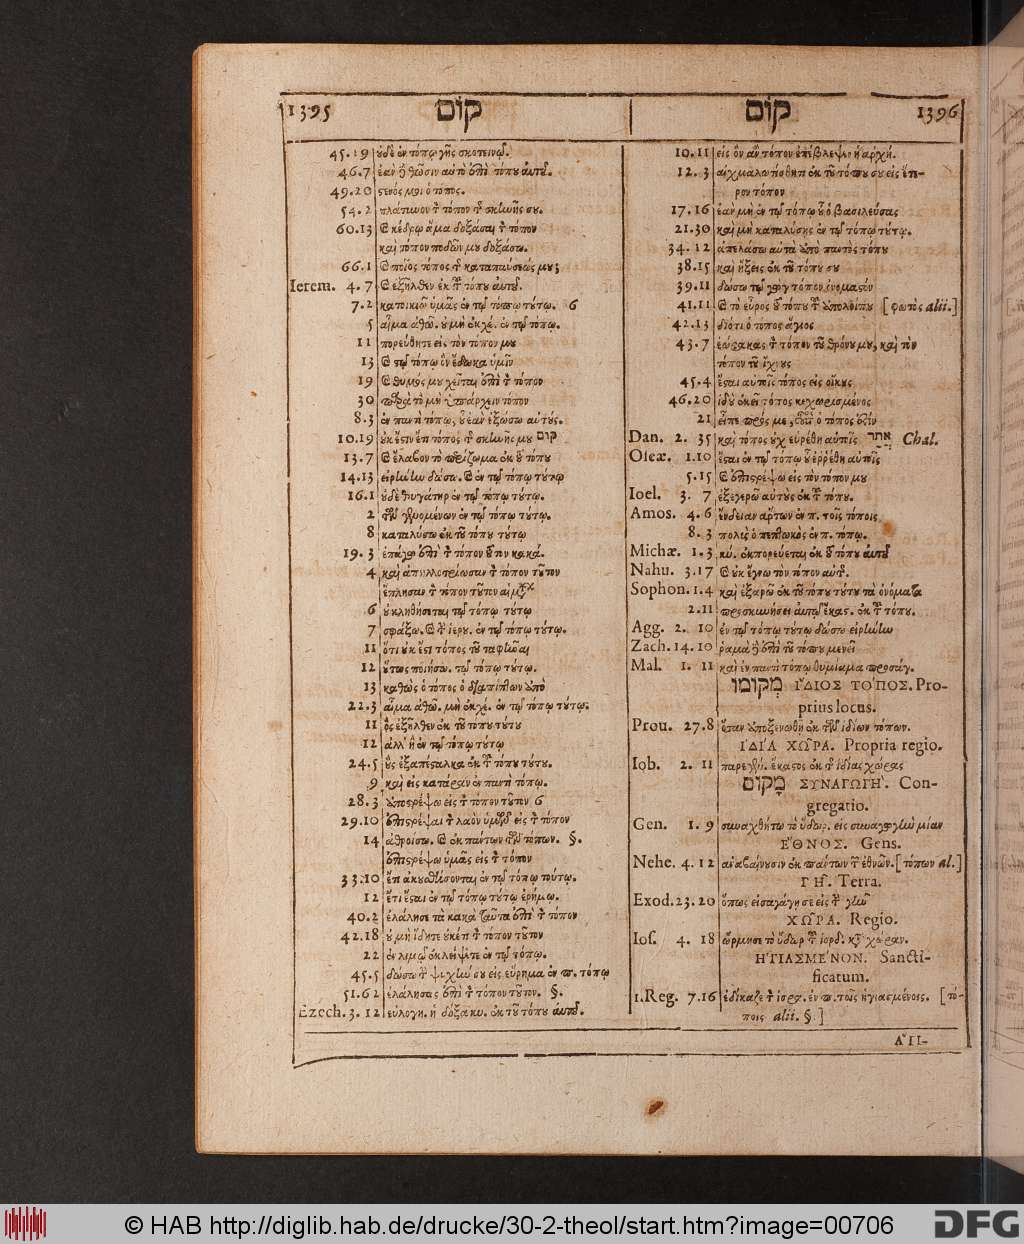 1395 קום
45.19 οὐδὲ ἐν τόπῳ γῆς σκοτεινῷ.
46.7 ἐὰν θῶσιν αὐτὸ ἐπὶ τόπου αὐτοῦ.
49.20 στενός μοι ὁ τόπος.
54.2 πλάτυνον τὸν τόπον τῆς σκηνῆς σου.
60.13 καὶ κέδρῳ ἅμα δοξάσαι τὸν τόπον
καὶ τόπον ποδῶν μου δοξάσω.
66.1 καὶ ποῖος τόπος τῆς καταπαύσεώς μου;
Ierem. 4.7 καὶ ἐξῆλθεν ἐκ τοῦ τόπου αὐτοῦ.
7.2 κατοικιῶ ὑμᾶς ἐν τῷ τόπῳ τούτῳ. 6
5 αἷμα ἀθῶ. οὐ μὴ ἐκχέ. ἐν τῷ τόπῳ.
11 πορεύθητε εἰς τὸν τόπον μου
13 καὶ τῷ τόπῳ ὃν ἔδωκα ὑμῖν
19 καὶ θυμός μου χεῖται ἐπὶ τὸν τόπον
30 παρὰ τὸ μὴ ὑπάρχειν τόπον
8.3 ἐν παντὶ τόπῳ, οὗ ἐὰν ἐξώσω αὐτούς.
10.19 οὐκ ἔστιν ἔτι τόπος τῆς σκηνῆς μου קום
13.7 καὶ ἔλαβον τὸ περίζωμα ἐκ τοῦ τόπου
14.13 εἰρήνην δώσω. καὶ ἐν τῷ τόπῳ τούτῳ
16.1 οὐδὲ θυγάτηρ ἐν τῷ τόπῳ τούτῳ.
2 τῶν γεννομένων ἐν τῷ τόπῳ τούτῳ.
8 καταλύσω ἐκ τοῦ τόπου τούτου
19.3 ἐπάγω ἐπὶ τὸν τόπον τοῦτον κακά.
4 καὶ ἀπηλλοτρίωσαν τὸν τόπον τοῦτον
ἔπλησαν τὸν τόπον τοῦτον αἱμάτων
6 οὐ κληθήσεται τῷ τόπῳ τούτῳ
7 σφάξω. καὶ τὴν ἱερου. ἐν τῷ τόπῳ τούτῳ.
11 ὅτι οὐκ ἔστι τόπος τοῦ ταφῆναι
12 οὕτως ποιήσω. τῷ τόπῳ τούτῳ.
13 καθὼς ὁ τόπος ὁ διαπίπτων ἀπὸ
22.3 αἷμα ἀθῶ. μὴ ἐκχέ. ἐν τῷ τόπῳ τούτῳ.
11 ὃς ἐξῆλθεν ἐκ τοῦ τόπου τούτου
12 ἀλλ' ἢ ἐν τῷ τόπῳ τούτῳ
24.5 οὓς ἐξαπέσταλκα ἐκ τοῦ τόπου τούτου.
9 καὶ εἰς κατάραν ἐν παντὶ τόπῳ.
28.3 ἀποστρέψω εἰς τὸν τόπον τοῦτον 6
29.10 ἐπιστρέψαι τὸν λαὸν ὑμῶν εἰς τὸν τόπον
14 ἀθροίσω. καὶ ἐκ πάντων τῶν τόπων. §.
ἐπιστρέψω ὑμᾶς εἰς τὸν τόπον
33.10 ἔτι ἀκουσθήσονται ἐν τῷ τόπῳ τούτῳ.
12 ἔτι ἔσται ἐν τῷ τόπῳ τούτῳ ἐρήμῳ.
40.2 ἐλάλησε τὰ κακὰ ταῦτα ἐπὶ τὸν τόπον
42.18 οὐ μὴ ἴδητε οὐκέτι τὸν τόπον τοῦτον
22 ἐν λιμῷ ἐκλείψετε ἐν τῷ τόπῳ.
45.5 δώσω τὴν ψυχήν σου εἰς εὕρημα ἐν π. τόπῳ
51.62 ἐλάλησας ἐπὶ τὸν τόπον τοῦτον. §.
Ezech. 3.12 εὐλογη. ἡ δόξα κυ. ἐκ τοῦ τόπου αὐτοῦ.
קום 1396
10.11 εἰς ὃν ἂν τόπον ἐπέβλεψεν ἡ ἀρχή.
12.3 αἰχμαλωτίσθητι ἐκ τοῦ τόπου σου εἰς ἕτε-
ρον τόπον
17.16 ἐὰν μὴ ἐν τῷ τόπῳ οὗ ὁ βασιλεύσας
21.30 καὶ μὴ καταλύσῃς ἐν τῷ τόπῳ τούτῳ.
34.12 ἀπελάσω αὐτὰ ἀπὸ παντὸς τόπου
38.15 καὶ ἥξεις ἐκ τοῦ τόπου σου
39.11 δώσω τῷ γωγ τόπον ὀνομαστὸν
41.11 καὶ τὸ εὖρος τοῦ τόπου τοῦ ἀπολοίπου [φωτὸς alii.]
42.13 διότι ὁ τόπος ἅγιος
43.7 ἑώρακας τὸν τόπον τοῦ θρόνου μου, καὶ τὸν
τόπον τοῦ ἴχνους
45.4 ἔσται αὐτοῖς τόπος εἰς οἴκους
46.20 ἰδοὺ ἐκεῖ τόπος κεχωρισμένος
21 εἶπε πρός με, οὗτος ὁ τόπος ἐστίν
Dan. 2.35 καὶ τόπος οὐχ εὑρέθη αὐτοῖς אתר Chal.
Oseæ. 1.10 ἔσται ἐν τῷ τόπῳ οὗ ἐρρέθη αὐτοῖς
5.15 καὶ ἐπιστρέψω εἰς τὸν τόπον μου
Ioel. 3.7 ἐξεγερῶ αὐτοὺς ἐκ τοῦ τόπου.
Amos. 4.6 ἔνδειαν ἄρτων ἐν π. τοῖς τόποις
8.3 πολὺς ὁ πεπτωκὼς ἐν π. τόπῳ.
Michæ. 1.3 κύ. ἐκπορεύεται ἐκ τοῦ τόπου αὐτοῦ
Nahu. 3.17 καὶ οὐκ ἔγνω τὸν τόπον αὐτῆς.
Sophon. 1.4 καὶ ἐξαρῶ ἐκ τοῦ τόπου τούτου τὰ ὀνόματα
2.11 προσκυνήσει αὐτῷ ἕκας. ἐκ τοῦ τόπου.
Agg. 2.10 ἐν τῷ τόπῳ τούτῳ δώσω εἰρήνην
Zach. 14.10 ῥαμὰ ἐπὶ τοῦ τόπου μενεῖ
Mal. 1.11 καὶ ἐν παντὶ τόπῳ θυμίαμα προσάγ.
מְקומו ἼΔΙΟΣ ΤΌΠΟΣ. Pro-
prius locus.
Prou. 27.8 ὅταν ἀποξενωθῇ ἐκ τῶν ἰδίων τόπων.
ἸΔΊΑ ΧΏΡΑ. Propria regio.
Iob. 2.11 παρεγέν. ἕκαστος ἐκ τῆς ἰδίας χώρας
מָקום ΣΥΝΑΓΩΓΉ. Con-
gregatio.
Gen. 1.9 συναχθήτω τὸ ὕδωρ. εἰς συναγωγὴν μίαν
ἜΘΝΟΣ. Gens.
Nehe. 4.12 ἀναβαίνουσιν ἐκ πάντων τῶν ἐθνῶν. [τόπων al.]
ΓΗ͂. Terra.
Exod. 23.20 ὅπως εἰσαγάγῃ σε εἰς τὴν γῆν
ΧΏΡΑ. Regio.
Ios. 4.18 ὥρμησε τὸ ὕδωρ τοῦ ἰορδ. κατὰ χώραν.
ἩΓΙΑΣΜΈΝΟΝ. Sancti-
ficatum.
1.Reg. 7.16 ἐδίκαζε τὸν ἰσρα. ἐν π. τοῖς ἡγιασμένοις. [τό-
ποις alii. §]
ἈΠ-
© HAB http://diglib.hab.de/drucke/30-2-theol/start.htm?image=00706 DFG
DFG